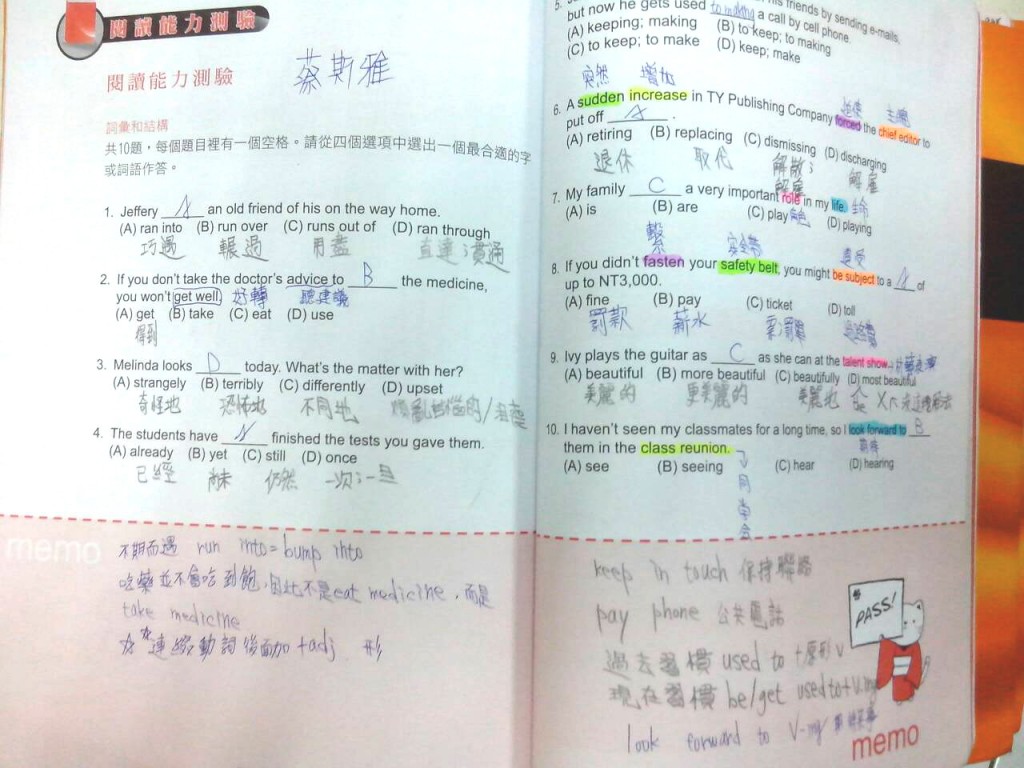 閱讀能力測驗
閱讀能力測驗 蔡斯雅
詞彙和結構
共10題，每個題目裡有一個空格。請從四個選項中選出一個最合適的字
或詞語作答。
1. Jeffery A an old friend of his on the way home.
(A) ran into (B) run over (C) runs out of (D) ran through
巧遇 輾過 用盡 直達；貫通
2. If you don't take the doctor's advice to B the medicine,
you won't get well. 好轉 聽建議
(A) get (B) take (C) eat (D) use
得到
3. Melinda looks D today. What's the matter with her?
(A) strangely (B) terribly (C) differently (D) upset
奇怪地 恐怖地 不同地
4. The students have A finished the tests you gave them.
(A) already (B) yet (C) still (D) once
已經 尚未 仍然 一次；一旦
memo
不期而遇 run into = bump into
吃藥並不會吃到飽，因此不是eat medicine，而是
take medicine
連綴動詞後面加 + adj 形
his friends by sending e-mails,
but now he gets used to making a call by cell phone.
(A) keeping; making (B) to keep; to making
(C) to keep; to make (D) keep; make
突然 增加
6. A sudden increase in TY Publishing Company forced the chief editor to
迫使 主編
put off A .
(A) retiring (B) replacing (C) dismissing (D) discharging
退休 取代 解散；解雇 解雇
7. My family C a very important role in my life.
(A) is (B) are (C) play (D) playing
繫 安全帶 遭受
8. If you didn't fasten your safety belt, you might be subject to a A of
up to NT3,000.
(A) fine (B) pay (C) ticket (D) toll
罰款 薪水 過路費
9. Ivy plays the guitar as C as she can at the talent show.
(A) beautiful (B) more beautiful (C) beautifully (D) most beautiful
美麗的 更美麗的 美麗地
10. I haven't seen my classmates for a long time, so I look forward to B
期待
them in the class reunion.
(A) see (B) seeing (C) hear (D) hearing
同學會
keep in touch 保持聯絡
pay phone 公共電話
過去習慣 used to + 原形 v
現在習慣 be/get used to + V-ing
look forward to V-ing
PASS!
memo